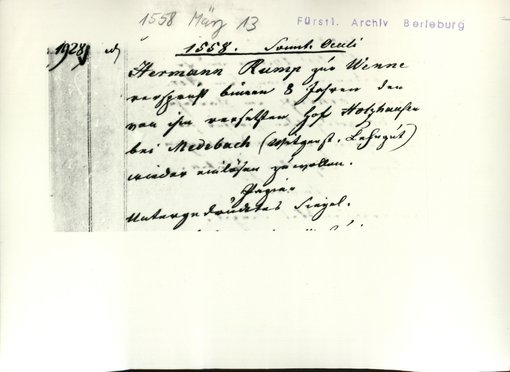 1558 März 13
Fürstl. Archiv Berleburg
1928
1558. Sonnt. Oculi
Hermann Rump zur Wenne
verspricht binnen 8 Jahren den
von ihm versetzten Hof Holzhausen
bei Medebach (Witgenst. Lehngut)
wieder einlösen zu wollen.
Papier
Untergedrücktes Siegel.